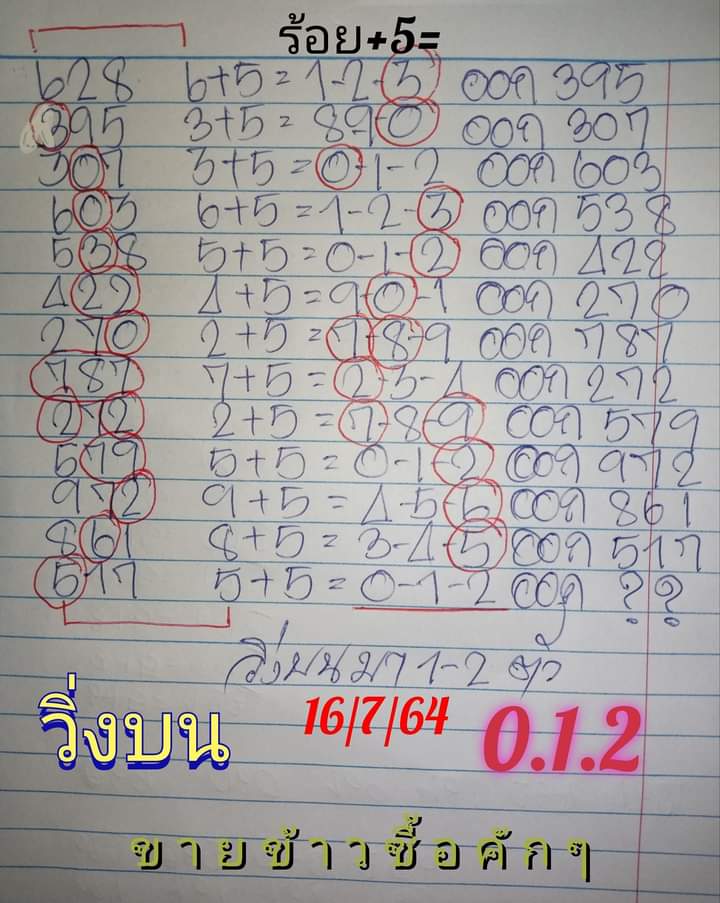 ร้อย+5=
628 6+5=1-2-3 ออก 395
395 3+5=8-9-0 ออก 307
307 3+5=0-1-2 ออก 603
603 6+5=1-2-3 ออก 538
538 5+5=0-1-2 ออก 422
422 4+5=9-0-1 ออก 270
270 2+5=7-8-9 ออก 787
787 7+5=2-5-4 ออก 272
272 2+5=7-8-9 ออก 579
579 5+5=0-1-2 ออก 972
972 9+5=4-5-6 ออก 861
861 8+5=3-4-5 ออก 517
517 5+5=0-1-2 ออก ??
วิ่งบนมา 1-2 ตัว
วิ่งบน 16/7/64 0.1.2
ขายข้าวซื้อคักๆ